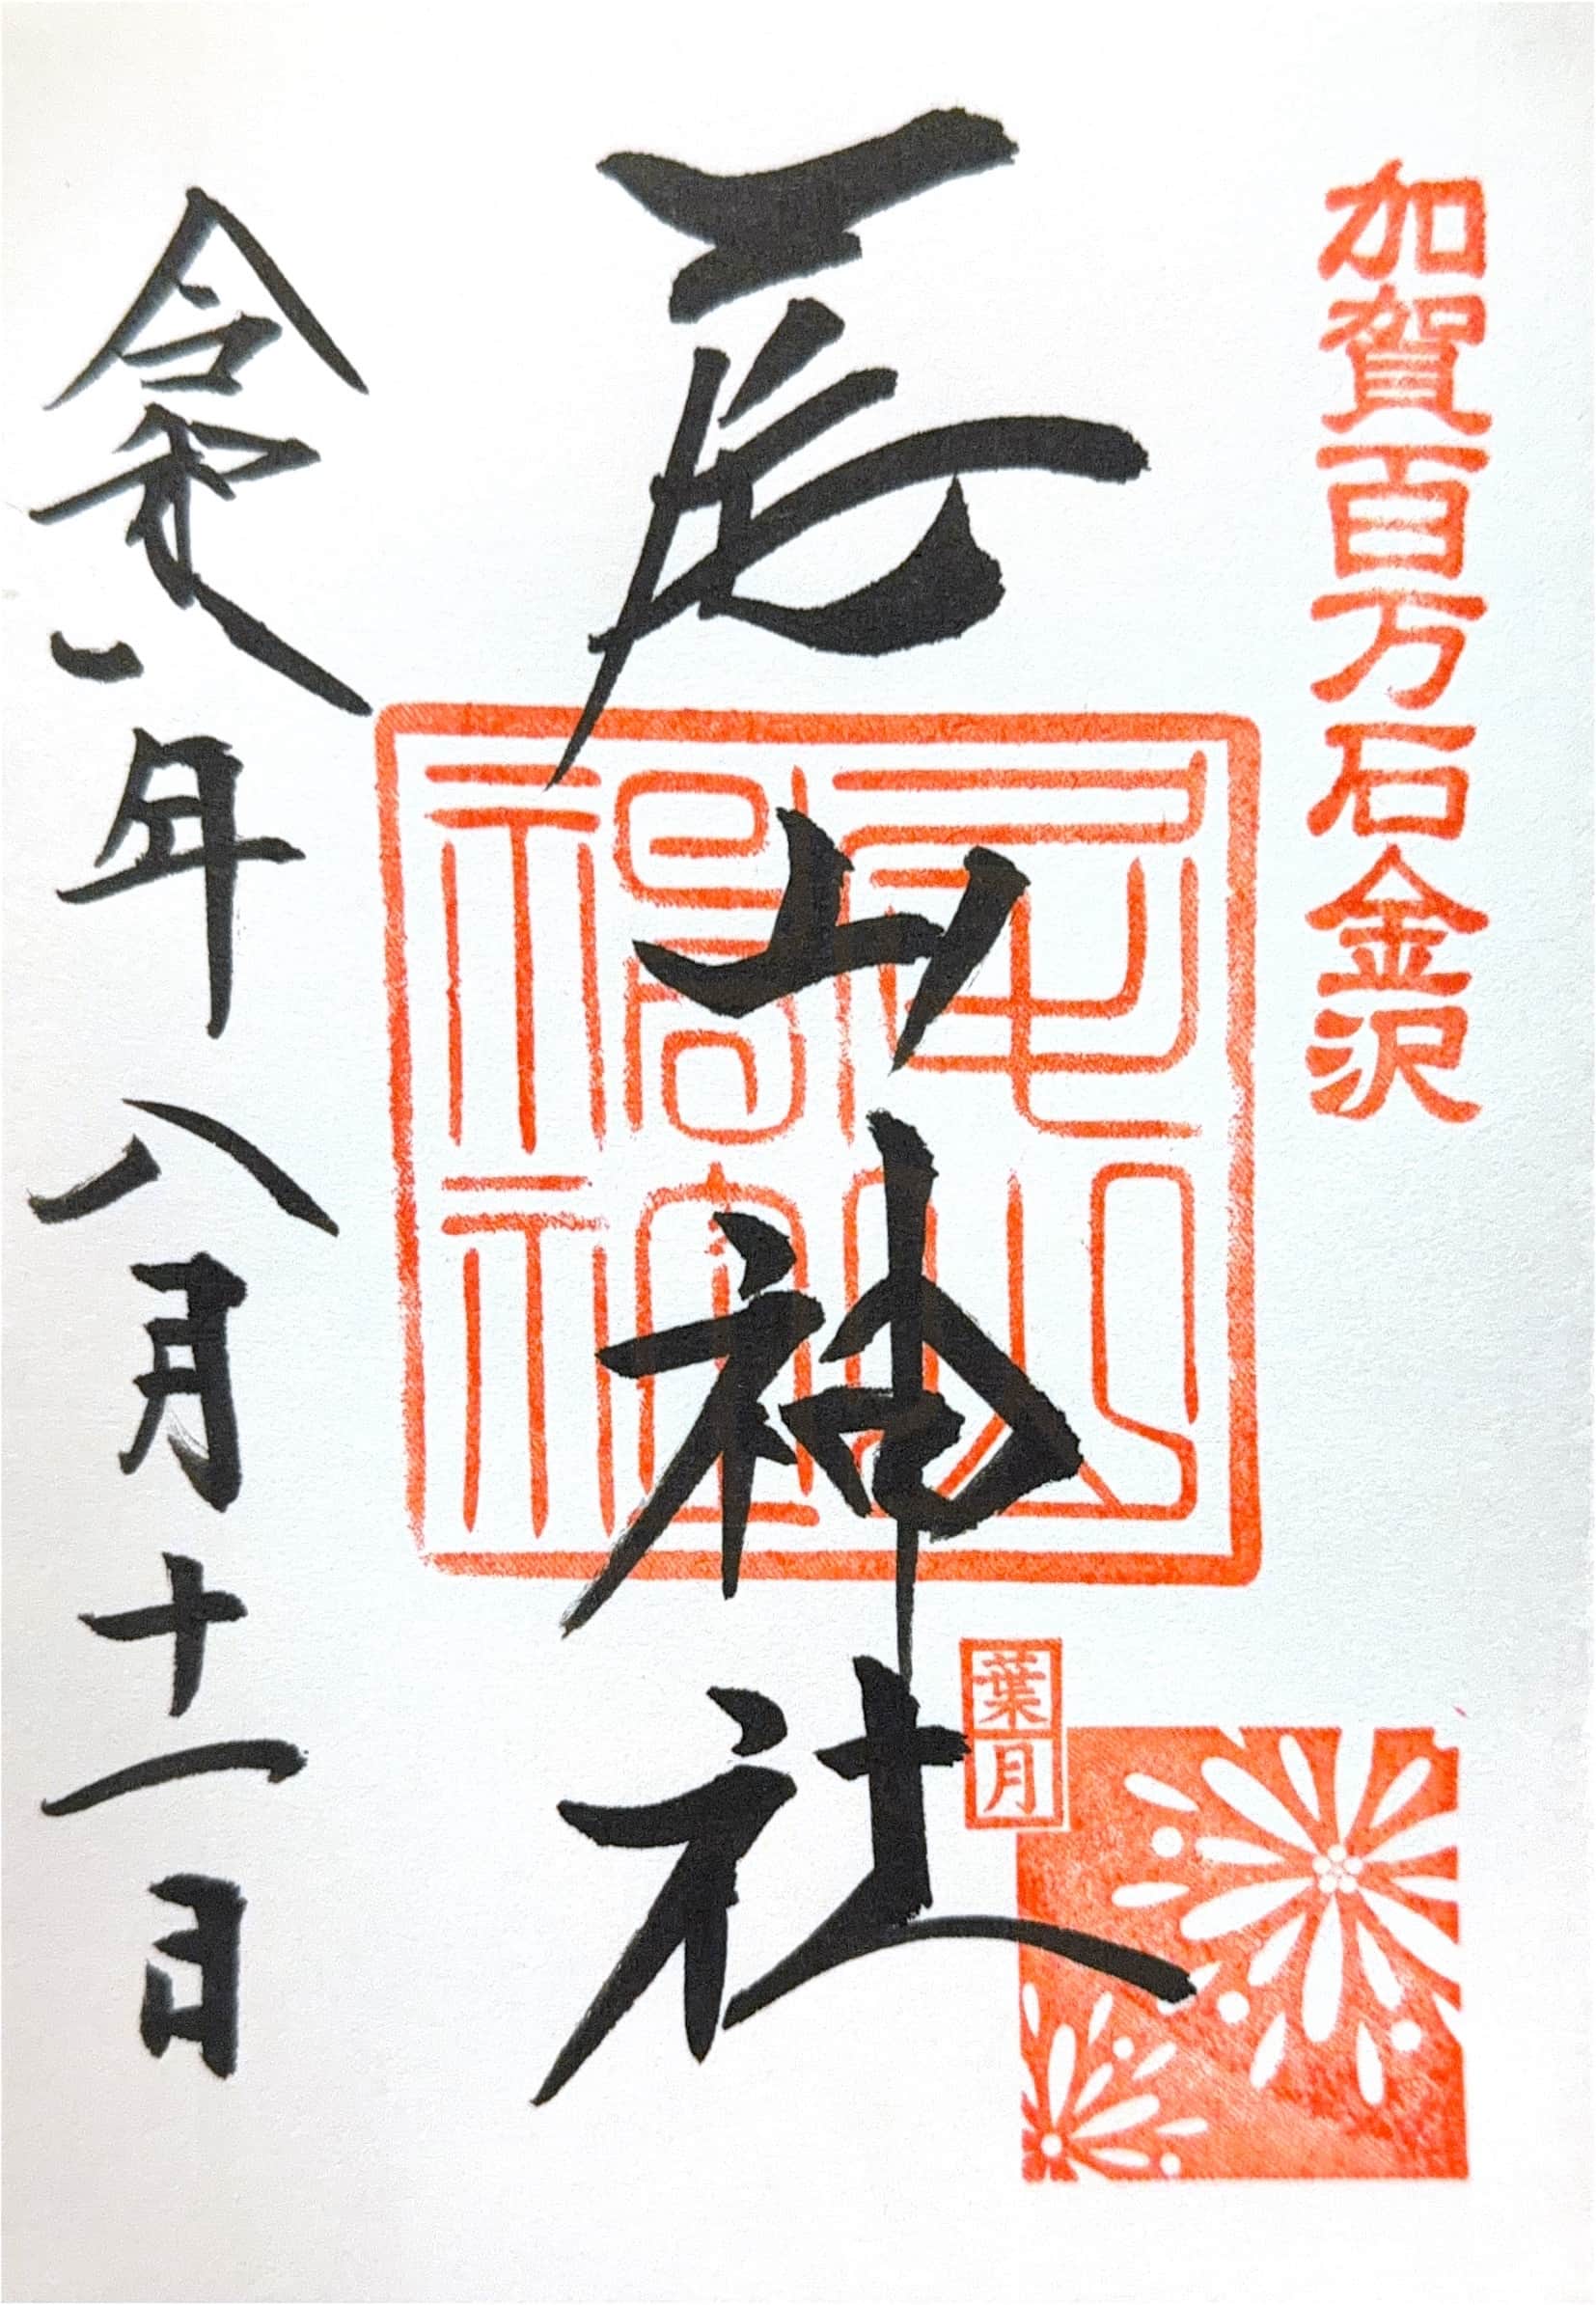 加賀百万石金沢
尾山神社
尾山神社
葉月
令和八年八月十一日